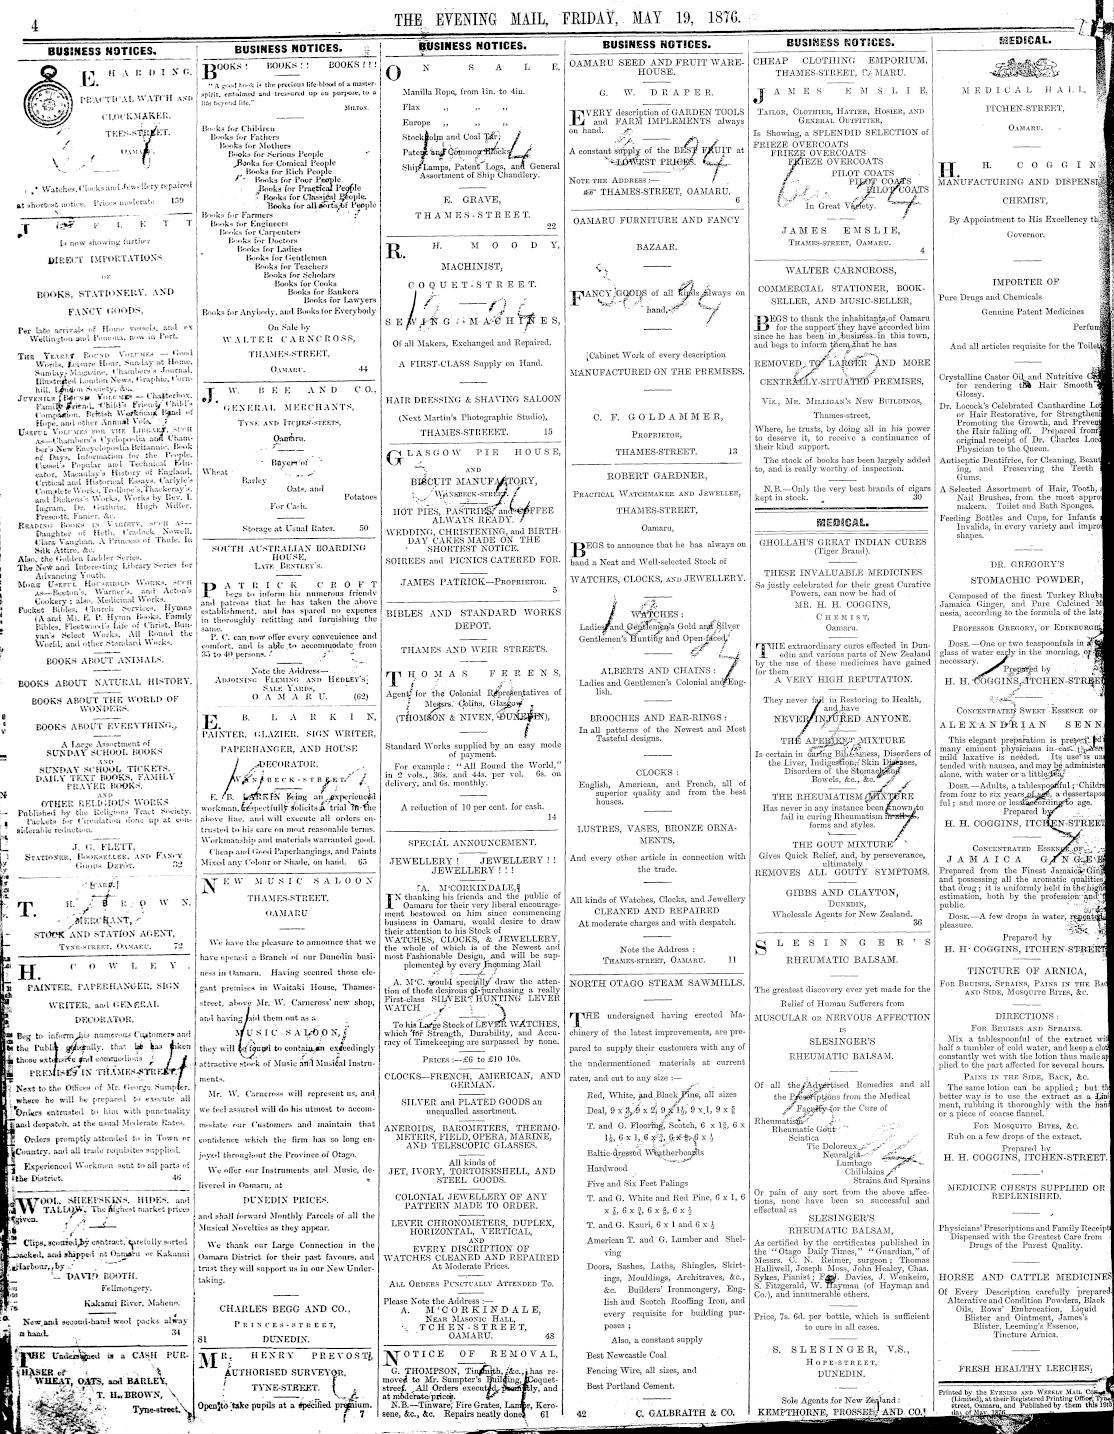 4
THE EVENING MAIL, FRIDAY, MAY 19, 1876.
BUSINESS NOTICES.
E. HARDING,
PRACTICAL WATCH AND
CLOCKMAKER,
TEES-STREET,
OAMARU.
Watches, Clocks and Jewellery repaired
at shortest notice. Prices moderate 159
J. G. FLETT
Is now showing further
DIRECT IMPORTATIONS
OF
BOOKS, STATIONERY, AND
FANCY GOODS,
Per late arrivals of Home vessels, and ex
Wellington and Pomona, now in Port.
THE YEARLY BOUND VOLUMES — Good
Words, Leisure Hour, Sunday at Home,
Sunday Magazine, Chambers's Journal,
Illustrated London News, Graphic, Corn-
hill, London Society, &c.
JUVENILE BOUND VOLUMES — Chatterbox,
Family Friend, Child's Friend, Child's
Companion, British Workman, Band of
Hope, and other Annual Vols.
USEFUL VOLUMES FOR THE LIBRARY, SUCH
AS—Chambers's Cyclopædia and Cham-
ber's New Encyclopædia Britannic, Book
of Days, Information for the People,
Cassel's Popular and Technical Edu-
cator, Macaulay's History of England,
Critical and Historical Essays, Carlyle's
Complete Works, Trollope's, Thackeray's,
and Dickens's Works, Works by Rev. I.
Ingram, Dr. Guthrie, Hugh Miller,
Prescott, &c.
READING BOOKS IN VARIETY, SUCH AS—
Daughter of Heth, Cradock Nowell,
Clara Vaughan, A Princess of Thule, In
Silk Attire, &c.
Also, the Golden Ladder Series.
The New and Interesting Library Series for
Advancing Youth.
MORE USEFUL HOUSEHOLD WORKS, SUCH
AS—Beeton's, Warner's, and Acton's
Cookery; also, Medicinal Works.
Pocket Bibles, Church Services, Hymns
(A and M), E. P. Hymn Books, Family
Bibles, Fleetwood's Life of Christ, Bun-
yan's Select Works, All Round the
World, and other Standard Works.
BOOKS ABOUT ANIMALS.
BOOKS ABOUT NATURAL HISTORY.
BOOKS ABOUT THE WORLD OF
WONDERS.
BOOKS ABOUT EVERYTHING.
A Large Assortment of
SUNDAY SCHOOL BOOKS
AND
SUNDAY SCHOOL TICKETS,
DAILY TEXT BOOKS, FAMILY
PRAYER BOOKS,
AND
OTHER RELIGIOUS WORKS
Published by the Religious Tract Society.
Packets for Circulation done up at con-
siderable reduction.
J. G. FLETT,
STATIONER, BOOKSELLER, AND FANCY
GOODS DEPOT. 32
[CARD.]
T. H. BROWN,
MERCHANT,
STOCK AND STATION AGENT,
TYNE-STREET, OAMARU. 72
H. COWLEY,
PAINTER, PAPERHANGER, SIGN
WRITER, and GENERAL
DECORATOR.
Beg to inform his numerous Customers and
the Public generally, that he has taken
those extensive and commodious
PREMISES IN THAMES-STREET,
Next to the Offices of Mr. George Sumpter,
where he will be prepared to execute all
Orders entrusted to him with punctuality
and despatch, at the usual Moderate Rates.
Orders promptly attended to in Town or
Country, and all trade requisites supplied.
Experienced Workmen sent to all parts of
the District. 46
WOOL, SHEEPSKINS, HIDES, and
TALLOW. The highest market prices
given.
Clips, scoured by contract, carefully sorted
packed, and shipped at Oamaru or Kakanui
Harbour, by
DAVID BOOTH,
Fellmongery,
Kakanui River, Maheno.
New and second-hand wool packs alway
on hand. 34
THE Undersigned is a CASH PUR-
CHASER of
WHEAT, OATS, and BARLEY,
T. H. BROWN,
Tyne-street.
BUSINESS NOTICES.
BOOKS! BOOKS!! BOOKS!!!
"A good book is the precious life-blood of a master-
spirit, embalmed and treasured up on purpose, to a
life beyond life."
MILTON.
Books for Children
Books for Fathers
Books for Mothers
Books for Serious People
Books for Comical People
Books for Rich People
Books for Poor People
Books for Practical People
Books for Classical People.
Books for all sorts of People
Books for Farmers
Books for Engineers
Books for Carpenters
Books for Doctors
Books for Ladies
Books for Gentlemen
Books for Teachers
Books for Scholars
Books for Cooks
Books for Bankers
Books for Lawyers
Books for Anybody, and Books for Everybody
On Sale by
WALTER CARNCROSS,
THAMES-STREET,
OAMARU. 44
J. W. BEE AND CO.,
GENERAL MERCHANTS,
TYNE AND ITCHEN-STEETS,
Oamaru.
Buyers of
Wheat
Barley
Oats, and
Potatoes
For Cash.
Storage at Usual Rates. 50
SOUTH AUSTRALIAN BOARDING
HOUSE,
LATE BENTLEY'S.
PATRICK CROFT
begs to inform his numerous friends
and patrons that he has taken the above
establishment, and has spared no expense
in thoroughly refitting and furnishing the
same.
P. C. can now offer every convenience and
comfort, and is able to accommodate from
35 to 40 persons.
Note the Address—
ADJOINING FLEMING AND HEDLEY'S
SALE YARDS,
OAMARU. (62)
E. B. LARKIN,
PAINTER, GLAZIER, SIGN WRITER,
PAPERHANGER, AND HOUSE
DECORATOR.
WANSBECK-STREET.
E. B. LARKIN Being an experienced
workman, respectfully solicits a trial in the
above line, and will execute all orders en-
trusted to his care on most reasonable terms.
Workmanship and materials warranted good.
Cheap and Good Paperhangings, and Paints
Mixed any Colour or Shade, on hand. 65
NEW MUSIC SALOON
THAMES-STREET,
OAMARU
We have the pleasure to announce that we
have opened a Branch of our Dunedin busi-
ness in Oamaru. Having secured those ele-
gant premises in Waitaki House, Thames-
street, above Mr. W. Carncross' new shop,
and having laid them out as a
MUSIC SALOON,
they will be found to contain an exceedingly
attractive stock of Music and Musical Instru-
ments.
Mr. W. Carncross will represent us, and
we feel assured will do his utmost to accom-
modate our Customers and maintain that
confidence which the firm has so long en-
joyed throughout the Province of Otago.
We offer our Instruments and Music, de-
livered in Oamaru, at
DUNEDIN PRICES.
and shall forward Monthly Parcels of all the
Musical Novelties as they appear.
We thank our Large Connection in the
Oamaru District for their past favours, and
trust they will support us in our New Under-
taking.
CHARLES BEGG AND CO.,
PRINCES-STREET,
81 DUNEDIN.
MR. HENRY PREVOST,
AUTHORISED SURVEYOR,
TYNE-STREET.
Open to take pupils at a specified premium.
7
BUSINESS NOTICES.
ON SALE,
Manilla Rope, from 1in. to 4in.
Flax ,, ,,
Europe ,, ,,
Stockholm and Coal Tar,
Patent and Common Blocks
Ship Lamps, Patent Logs, and General
Assortment of Ship Chandlery.
E. GRAVE,
THAMES-STREET.
22
R. H. MOODY,
MACHINIST,
COQUET-STREET.
SEWING MACHINES,
Of all Makers, Exchanged and Repaired.
A FIRST-CLASS Supply on Hand.
HAIR DRESSING & SHAVING SALOON
(Next Martin's Photographic Studio),
THAMES-STREEET. 15
GLASGOW PIE HOUSE,
AND
BISCUIT MANUFACTORY,
WANSBECK-STREET.
HOT PIES, PASTRIES, and COFFEE
ALWAYS READY.
WEDDING, CHRISTENING, and BIRTH-
DAY CAKES MADE ON THE
SHORTEST NOTICE.
SOIREES and PICNICS CATERED FOR.
JAMES PATRICK—PROPRIETOR.
5
BIBLES AND STANDARD WORKS
DEPOT.
THAMES AND WEIR STREETS.
THOMAS FERENS,
Agent for the Colonial Representatives of
Messrs. Collins, Glasgow
(THOMSON & NIVEN, DUNEDIN),
Standard Works supplied by an easy mode
of payment.
For example: "All Round the World,"
in 2 vols., 36s. and 44s. per vol. 6s. on
delivery, and 6s. monthly.
A reduction of 10 per cent. for cash.
14
SPECIAL ANNOUNCEMENT.
JEWELLERY! JEWELLERY!!
JEWELLERY!!!
A. M'CORKINDALE,
IN thanking his friends and the public of
Oamaru for their very liberal encourage-
ment bestowed on him since commencing
business in Oamaru, would desire to draw
their attention to his Stock of
WATCHES, CLOCKS, & JEWELLERY,
the whole of which is of the Newest and
most Fashionable Design, and will be sup-
plemented by every Incoming Mail
A. M'C. would specially draw the atten-
tion of those desirous of purchasing a really
First-class SILVER HUNTING LEVER
WATCH
To his Large Stock of LEVER WATCHES,
which for Strength, Durability, and Accu-
racy of Timekeeping are surpassed by none.
PRICES:—£6 to £10 10s.
CLOCKS—FRENCH, AMERICAN, AND
GERMAN.
SILVER and PLATED GOODS an
unequalled assortment.
ANEROIDS, BAROMETERS, THERMO-
METERS, FIELD, OPERA, MARINE,
AND TELESCOPIC GLASSES.
All kinds of
JET, IVORY, TORTOISESHELL, AND
STEEL GOODS.
COLONIAL JEWELLERY OF ANY
PATTERN MADE TO ORDER.
LEVER CHRONOMETERS, DUPLEX,
HORIZONTAL, VERTICAL,
AND
EVERY DISCRIPTION OF
WATCHES CLEANED AND REPAIRED
At Moderate Prices.
ALL ORDERS PUNCTUALLY ATTENDED TO.
Please Note the Address:—
A. M'CORKINDALE,
NEAR MASONIC HALL,
TCHEN-STREET,
OAMARU. 48
NOTICE OF REMOVAL,
G. THOMPSON, Tinsmith, &c., has re-
moved to Mr. Sumpter's Building, Coquet-
street. All Orders executed promptly, and
at moderate prices.
N.B.—Tinware, Fire Grates, Lamps, Kero-
sene, &c., &c. Repairs neatly done. 61
BUSINESS NOTICES.
OAMARU SEED AND FRUIT WARE-
HOUSE.
G. W. DRAPER.
EVERY description of GARDEN TOOLS
and FARM IMPLEMENTS always
on hand.
A constant supply of the BEST FRUIT at
LOWEST PRICES.
NOTE THE ADDRESS:—
THAMES-STREET, OAMARU.
6
OAMARU FURNITURE AND FANCY
BAZAAR.
FANCY GOODS of all kinds always on
hand.
Cabinet Work of every description
MANUFACTURED ON THE PREMISES.
C. F. GOLDAMMER,
PROPRIETOR,
THAMES-STREET. 13
ROBERT GARDNER,
PRACTICAL WATCHMAKER AND JEWELLER,
THAMES-STREET,
Oamaru,
BEGS to announce that he has always on
hand a Neat and Well-selected Stock of
WATCHES, CLOCKS, AND JEWELLERY.
WATCHES:
Ladies and Gentlemen's Gold and Silver
Gentlemen's Hunting and Open-faced.
ALBERTS AND CHAINS:
Ladies and Gentlemen's Colonial and Eng-
lish.
BROOCHES AND EAR-RINGS:
In all patterns of the Newest and Most
Tasteful designs.
CLOCKS:
English, American, and French, all of
superior quality and from the best
houses.
LUSTRES, VASES, BRONZE ORNA-
MENTS,
And every other article in connection with
the trade.
All kinds of Watches, Clocks, and Jewellery
CLEANED AND REPAIRED
At moderate charges and with despatch.
Note the Address:
THAMES-STREET, OAMARU. 11
NORTH OTAGO STEAM SAWMILLS.
THE undersigned having erected Ma-
chinery of the latest improvements, are pre-
pared to supply their customers with any of
the undermentioned materials at current
rates, and cut to any size:—
Red, White, and Black Pine, all sizes
Deal, 9 x 3, 9 x 2, 9 x 1½, 9 x 1, 9 x
T. and G. Flooring, Scotch, 6 x
1½, 6 x 1, 6 x 6 x ½
Baltic-dressed Weatherboards
Hardwood
Five and Six Feet Palings
T. and G. White and Red Pine, 6 x 1, 6
x 6 x 6 x ½
T. and G. Kauri, 6 x 1 and 6 x ½
American T. and G. Lumber and Shel-
ving
Doors, Sashes, Laths, Shingles, Skirt-
ings, Mouldings, Architraves, &c.,
&c. Builders' Ironmongery, Eng-
lish and Scotch Roofing Iron, and
every requisite for building pur-
poses;
Also, a constant supply
Best Newcastle Coal
Fencing Wire, all sizes, and
Best Portland Cement.
42 C. GALBRAITH & CO.
BUSINESS NOTICES.
CHEAP CLOTHING EMPORIUM,
THAMES-STREET, OAMARU.
JAMES EMSLIE,
TAILOR, CLOTHIER, HATTER, HOSIER, AND
GENERAL OUTFITTER,
Is Showing, a SPLENDID SELECTION of
FRIEZE OVERCOATS
FRIEZE OVERCOATS
FRIEZE OVERCOATS
PILOT COATS
PILOT COATS
PILOT COATS
In Great Variety.
JAMES EMSLIE,
THAMES-STREET, OAMARU.
4
WALTER CARNCROSS,
COMMERCIAL STATIONER, BOOK-
SELLER, AND MUSIC-SELLER,
BEGS to thank the inhabitants of Oamaru
for the support they have accorded him
since he has been in business in this town,
and begs to inform them that he has
REMOVED TO LARGER AND MORE
CENTRALLY-SITUATED PREMISES,
VIZ., MR. MILLIGAN'S NEW BUILDINGS,
Thames-street,
Where, he trusts, by doing all in his power
to deserve it, to receive a continuance of
their kind support.
The stock of books has been largely added
to, and is really worthy of inspection.
N.B.—Only the very best brands of cigars
kept in stock. 30
MEDICAL.
GHOLLAH'S GREAT INDIAN CURES
(Tiger Brand).
THESE INVALUABLE MEDICINES
So justly celebrated for their great Curative
Powers, can now be had of
MR. H. H. COGGINS,
CHEMIST,
Oamaru.
THE extraordinary cures effected in Dun-
edin and various parts of New Zealand
by the use of these medicines have gained
for them
A VERY HIGH REPUTATION.
They never fail in Restoring to Health,
and have
NEVER INJURED ANYONE.
THE APERIENT MIXTURE
Is certain in curing Biliousness, Disorders of
the Liver, Indigestion, Skin Diseases,
Disorders of the Stomach and
Bowels, &c., &c.
THE RHEUMATISM MIXTURE
Has never in any instance been known to
fail in curing Rheumatism in all its
forms and styles.
THE GOUT MIXTURE
Gives Quick Relief, and, by perseverance,
ultimately
REMOVES ALL GOUTY SYMPTOMS.
GIBBS AND CLAYTON,
DUNEDIN,
Wholesale Agents for New Zealand.
36
SLESINGER'S
RHEUMATIC BALSAM.
The greatest discovery ever yet made for the
Relief of Human Sufferers from
MUSCULAR or NERVOUS AFFECTION
IS
SLESINGER'S
RHEUMATIC BALSAM.
Of all the Advertised Remedies and all
the Prescriptions from the Medical
Faculty for the Cure of
Rheumatism
Rheumatic Gout
Sciatica
Tic Doloreux
Neuralgia
Lumbago
Chillblains
Strains and Sprains
Or pain of any sort from the above affec-
tions, none have been so successful and
effectual as
SLESINGER'S
RHEUMATIC BALSAM,
As certified by the certificates published in
the "Otago Daily Times," "Guardian," of
Messrs. C. N. Reimer, surgeon; Thomas
Halliwell, Joseph Moss, John Healey, Chas.
Sykes, Pianist; Fred. Davies, J. Wenkeim,
S. Fitzgerald, W. Hayman (of Hayman and
Co.), and innumerable others.
Price, 7s. 6d. per bottle, which is sufficient
to cure in all cases.
S. SLESINGER, V.S.,
HOPE-STREET,
DUNEDIN.
Sole Agents for New Zealand:
KEMPTHORNE, PROSSER, AND CO.
MEDICAL.
MEDICAL HALL,
ITCHEN-STREET,
OAMARU.
H. H. COGGIN
MANUFACTURING AND DISPENSI
CHEMIST,
By Appointment to His Excellency th
Governor.
IMPORTER OF
Pure Drugs and Chemicals
Genuine Patent Medicines
Perfum
And all articles requisite for the Toilet
Crystalline Castor Oil and Nutritive C
for rendering the Hair Smooth
Glossy.
Dr. Locock's Celebrated Canthardine Lo
or Hair Restorative, for Strengthen
Promoting the Growth, and Preven
the Hair falling off. Prepared from
original receipt of Dr. Charles Loco
Physician to the Queen.
Antiseptic Dentifrice, for Cleaning, Beau
ing, and Preserving the Teeth
Gums.
A Selected Assortment of Hair, Tooth,
Nail Brushes, from the most appro
makers. Toilet and Bath Sponges.
Feeding Bottles and Cups, for Infants
Invalids, in every variety and improv
shapes.
DR. GREGORY'S
STOMACHIC POWDER,
Composed of the finest Turkey Rhuba
Jamaica Ginger, and Pure Calcined M
nesia, according to the formula of the late
PROFESSOR GREGORY, OF EDINBURG
DOSE.—One or two teaspoonfuls in a
glass of water early in the morning, or
necessary.
Prepared by
H. H. COGGINS, ITCHEN-STREE
CONCENTRATED SWEET ESSENCE OF
ALEXANDRIAN SENN
This elegant preparation is prescribed
many eminent physicians in cases where
mild laxative is needed. Its use is un
tended with nausea, and may be administer
alone, with water or a little tea.
DOSE.—Adults, a tablespoonful; Childre
from four to six years of age, a dessertspoo
ful; and more or less according to age.
Prepared by
H. H. COGGINS, ITCHEN-STREET
CONCENTRATED ESSENCE OF
JAMAICA GINGER
Prepared from the Finest Jamaica Ging
and possessing all the aromatic qualities
that drug; it is uniformly held in the highe
estimation, both by the profession and
public.
DOSE.—A few drops in water, repeated
pleasure.
Prepared by
H. H. COGGINS, ITCHEN-STREET
TINCTURE OF ARNICA,
FOR BRUISES, SPRAINS, PAINS IN THE BAC
AND SIDE, MOSQUITO BITES, &C.
DIRECTIONS:
FOR BRUISES AND SPRAINS.
Mix a tablespoonful of the extract wit
half a tumbler of cold water, and keep a clot
constantly wet with the lotion thus made ap
plied to the part affected for several hours.
PAINS IN THE SIDE, BACK, &C.
The same lotion can be applied; but the
better way is to use the extract as a Lini
ment, rubbing it thoroughly with the hand
or a piece of coarse flannel.
FOR MOSQUITO BITES, &C.
Rub on a few drops of the extract.
Prepared by
H. H. COGGINS, ITCHEN-STREET.
MEDICINE CHESTS SUPPLIED OR
REPLENISHED.
Physicians' Prescriptions and Family Receipts
Dispensed with the Greatest Care from
Drugs of the Purest Quality.
HORSE AND CATTLE MEDICINES
Of Every Description carefully prepared
Alterative and Condition Powders, Black
Oils, Rows' Embrocation, Liquid
Blister and Ointment, James's
Blister, Leeming's Essence,
Tincture Arnica.
FRESH HEALTHY LEECHES,
Printed by the EVENING AND WEEKLY MAIL CO.
(Limited), at their Registered Printing Office, Tyne
street, Oamaru, and Published by them this 19th
day of May, 1876.